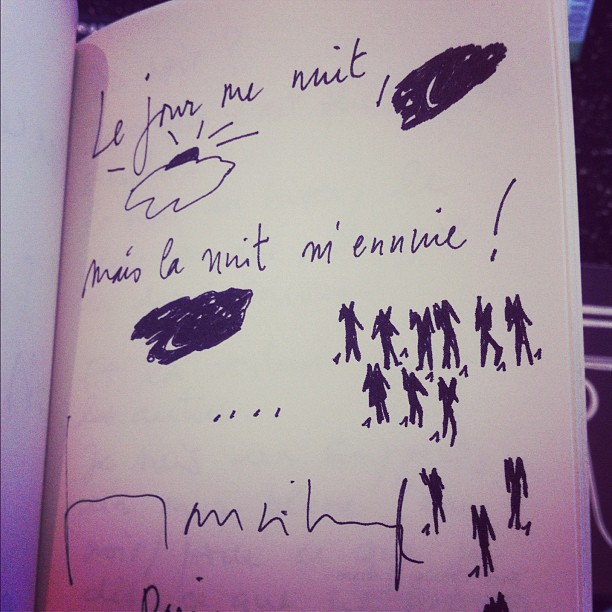 Le jour me nuit,
mais la nuit m'ennuie !
....